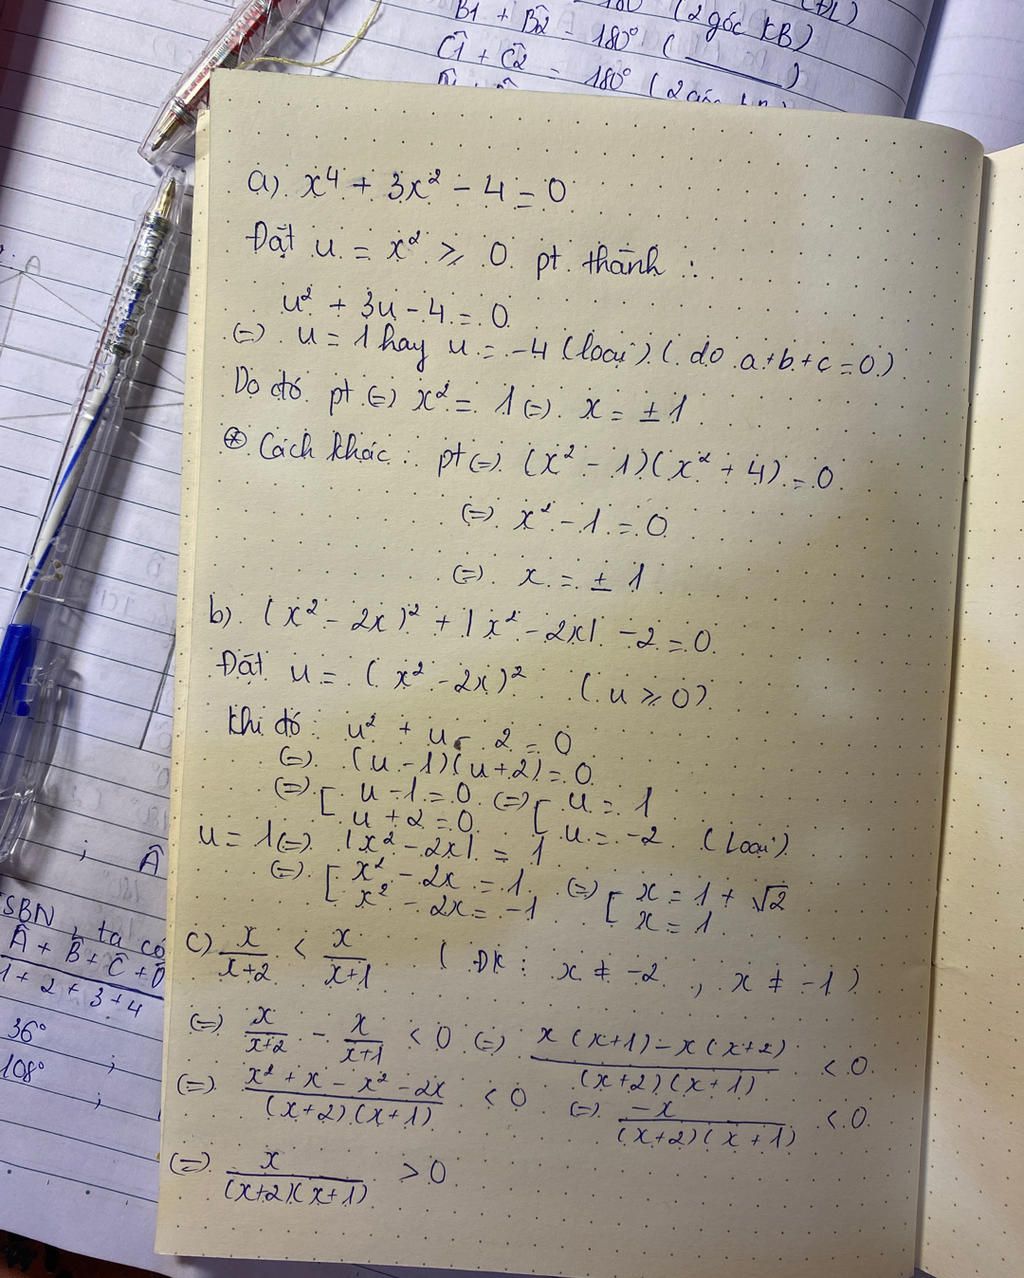 (ĐL)
B̂1 + B̂2 = 180° (2 góc KB)
Ĉ1 + Ĉ2 = 180° ( )
= 180° (2 góc
a) x⁴ + 3x² - 4 = 0
Đặt u = x² ≥ 0 pt thành :
u² + 3u - 4 = 0
(=) u = 1 hay u = -4 (loại) ( do a+b+c = 0)
Do đó pt (=) x² = 1 (=) x = ± 1
⊛ Cách khác : pt (=) (x² - 1)(x² + 4) = 0
(=) x² - 1 = 0
(=) x = ± 1
b) (x² - 2x)² + |x² - 2x| - 2 = 0
Đặt u = (x² - 2x)² (u ≥ 0)
Khi đó : u² + u - 2 = 0
(=) (u - 1)(u + 2) = 0
(=) [ u - 1 = 0 (=) [ u = 1
u + 2 = 0 u = -2 (Loại)
u = 1 (=) |x² - 2x| = 1
(=) [ x² - 2x = 1 (=) [ x = 1 + √2
x² - 2x = -1 x = 1
c) x/(x+2) < x/(x+1) ( ĐK : x ≠ -2 , x ≠ -1 )
(=) x/(x+2) - x/(x+1) < 0 (=) (x(x+1) - x(x+2))/((x+2)(x+1)) < 0
(=) (x² + x - x² - 2x)/((x+2)(x+1)) < 0 (=) -x/((x+2)(x+1)) < 0
(=) x/((x+2)(x+1)) > 0
A
; Â
SBN , ta có
Â + B̂ + Ĉ + D̂
1 + 2 + 3 + 4
36° ;
108° ;